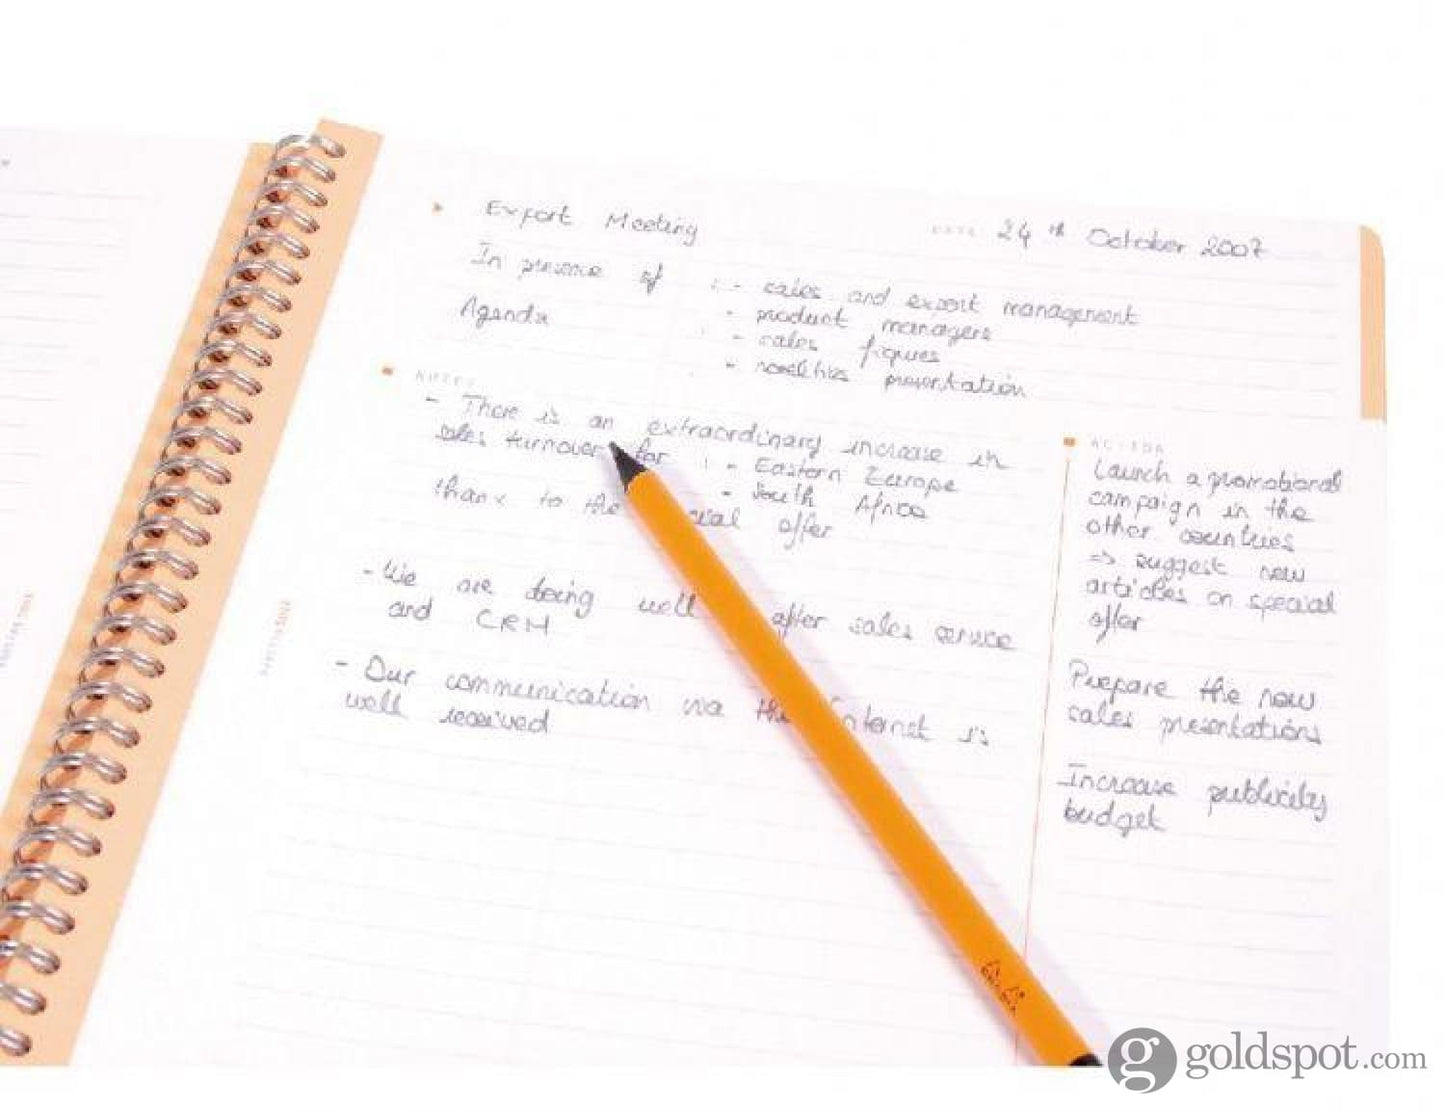 Export Meeting
DATE 24th October 2007
In presence of : - sales and export management
- product managers
Agenda : - sales figures
- novelties presentation
NOTES
- There is an extraordinary increase in
sales turnover for : - Eastern Europe
- South Africa
thanx to the offer
- We are doing well after sales service
and CRM
- Our communication via the internet is
well received
ACTION
Launch a promotional
campaign in the
other countries
=> suggest new
articles on special
offer
Prepare the new
sales presentations
Increase publicity
budget
g goldspot.com